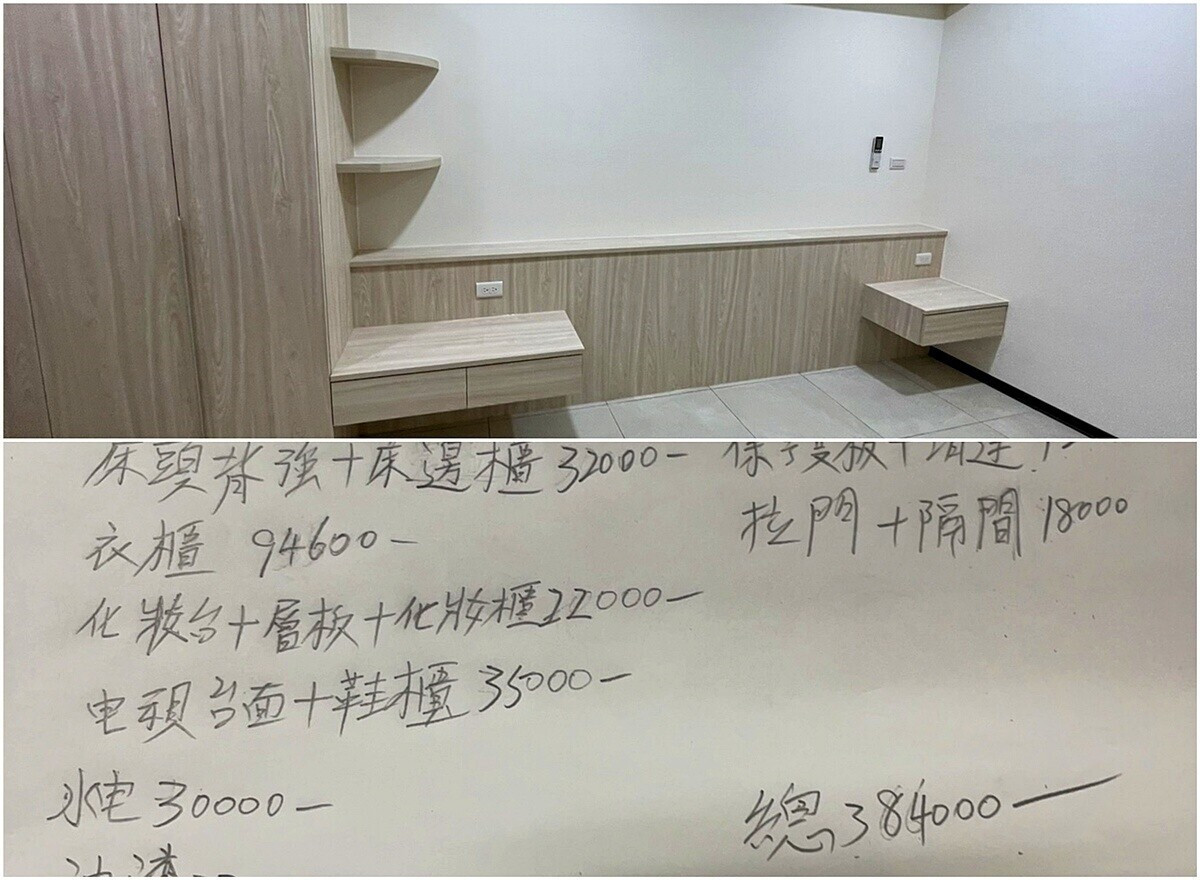 床頭背強+床邊櫃 32000-
衣櫃 94600-
化妝台+層板+化妝櫃 22000-
电視台面+鞋櫃 35000-
水电 30000-
保護板+
拉門+隔間 18000
總 384000-